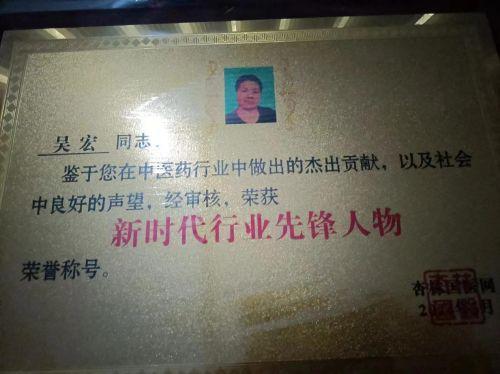 吴宏 同志：
鉴于您在中医药行业中做出的杰出贡献，以及社会
中良好的声望，经审核，荣获
新时代行业先锋人物
荣誉称号。
杏林国医网
月